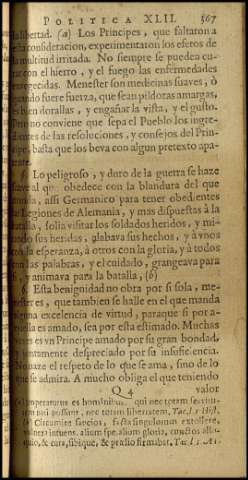 POLITICA XLII. 567
la libertad. (a) Los Principes, que faltaron a
esta consideracion, experimentaron los efetos de
la multitud irritada. No siempre se pueden cu-
rar con el hierro, y el fuego las enfermedades
envegecidas. Menester son medicinas suaves, ò
quando fuere fuerza, que sean pildoras amargas,
es bien dorallas, y engañar la vista, y el gusto.
no conviene que sepa el Pueblo los ingre-
dientes de las resoluciones, y consejos del Prin-
cipe, hasta que los beva con algun pretexto apa-
rente.
Lo peligroso, y duro de la guerra se haze
suave al que obedece con la blandura del que
manda, assi Germanico para tener obedientes
las Legiones de Alemania, y mas dispuestas à la
batalla, solia visitar los soldados heridos, y mi-
rando sus heridas, alabava sus hechos, y à unos
con la esperanza, à otros con la gloria, y à todos
con las palabras, y el cuidado, grangeava para
sì, y animava para la batalla, (b)
6. Esta benignidad no obra por si sola, me-
nester es, que tambien se halle en el que manda
alguna excelencia de virtud, paraque si por a-
quella es amado, sea por esta estimado. Muchas
vezes es vn Principe amado por su gran bondad,
y juntamente despreciado por su insuficiencia.
No naze el respeto de lo que se ama, sino de lo
que se admira. A mucho obliga el que teniendo
Q 4 valor
(a) Imperaturus es hominibus, qui nec totam servitu-
tem pati possunt, nec totam libertatem, Tac. l. 1 Hist.
(b) Circumire saucios, facta singulorum extollere,
vulnera intuens, alium spe, alium gloria, cunctos allo-
quio, & cura, sibique, & prælio firmabat, Tac. l. 1. An.